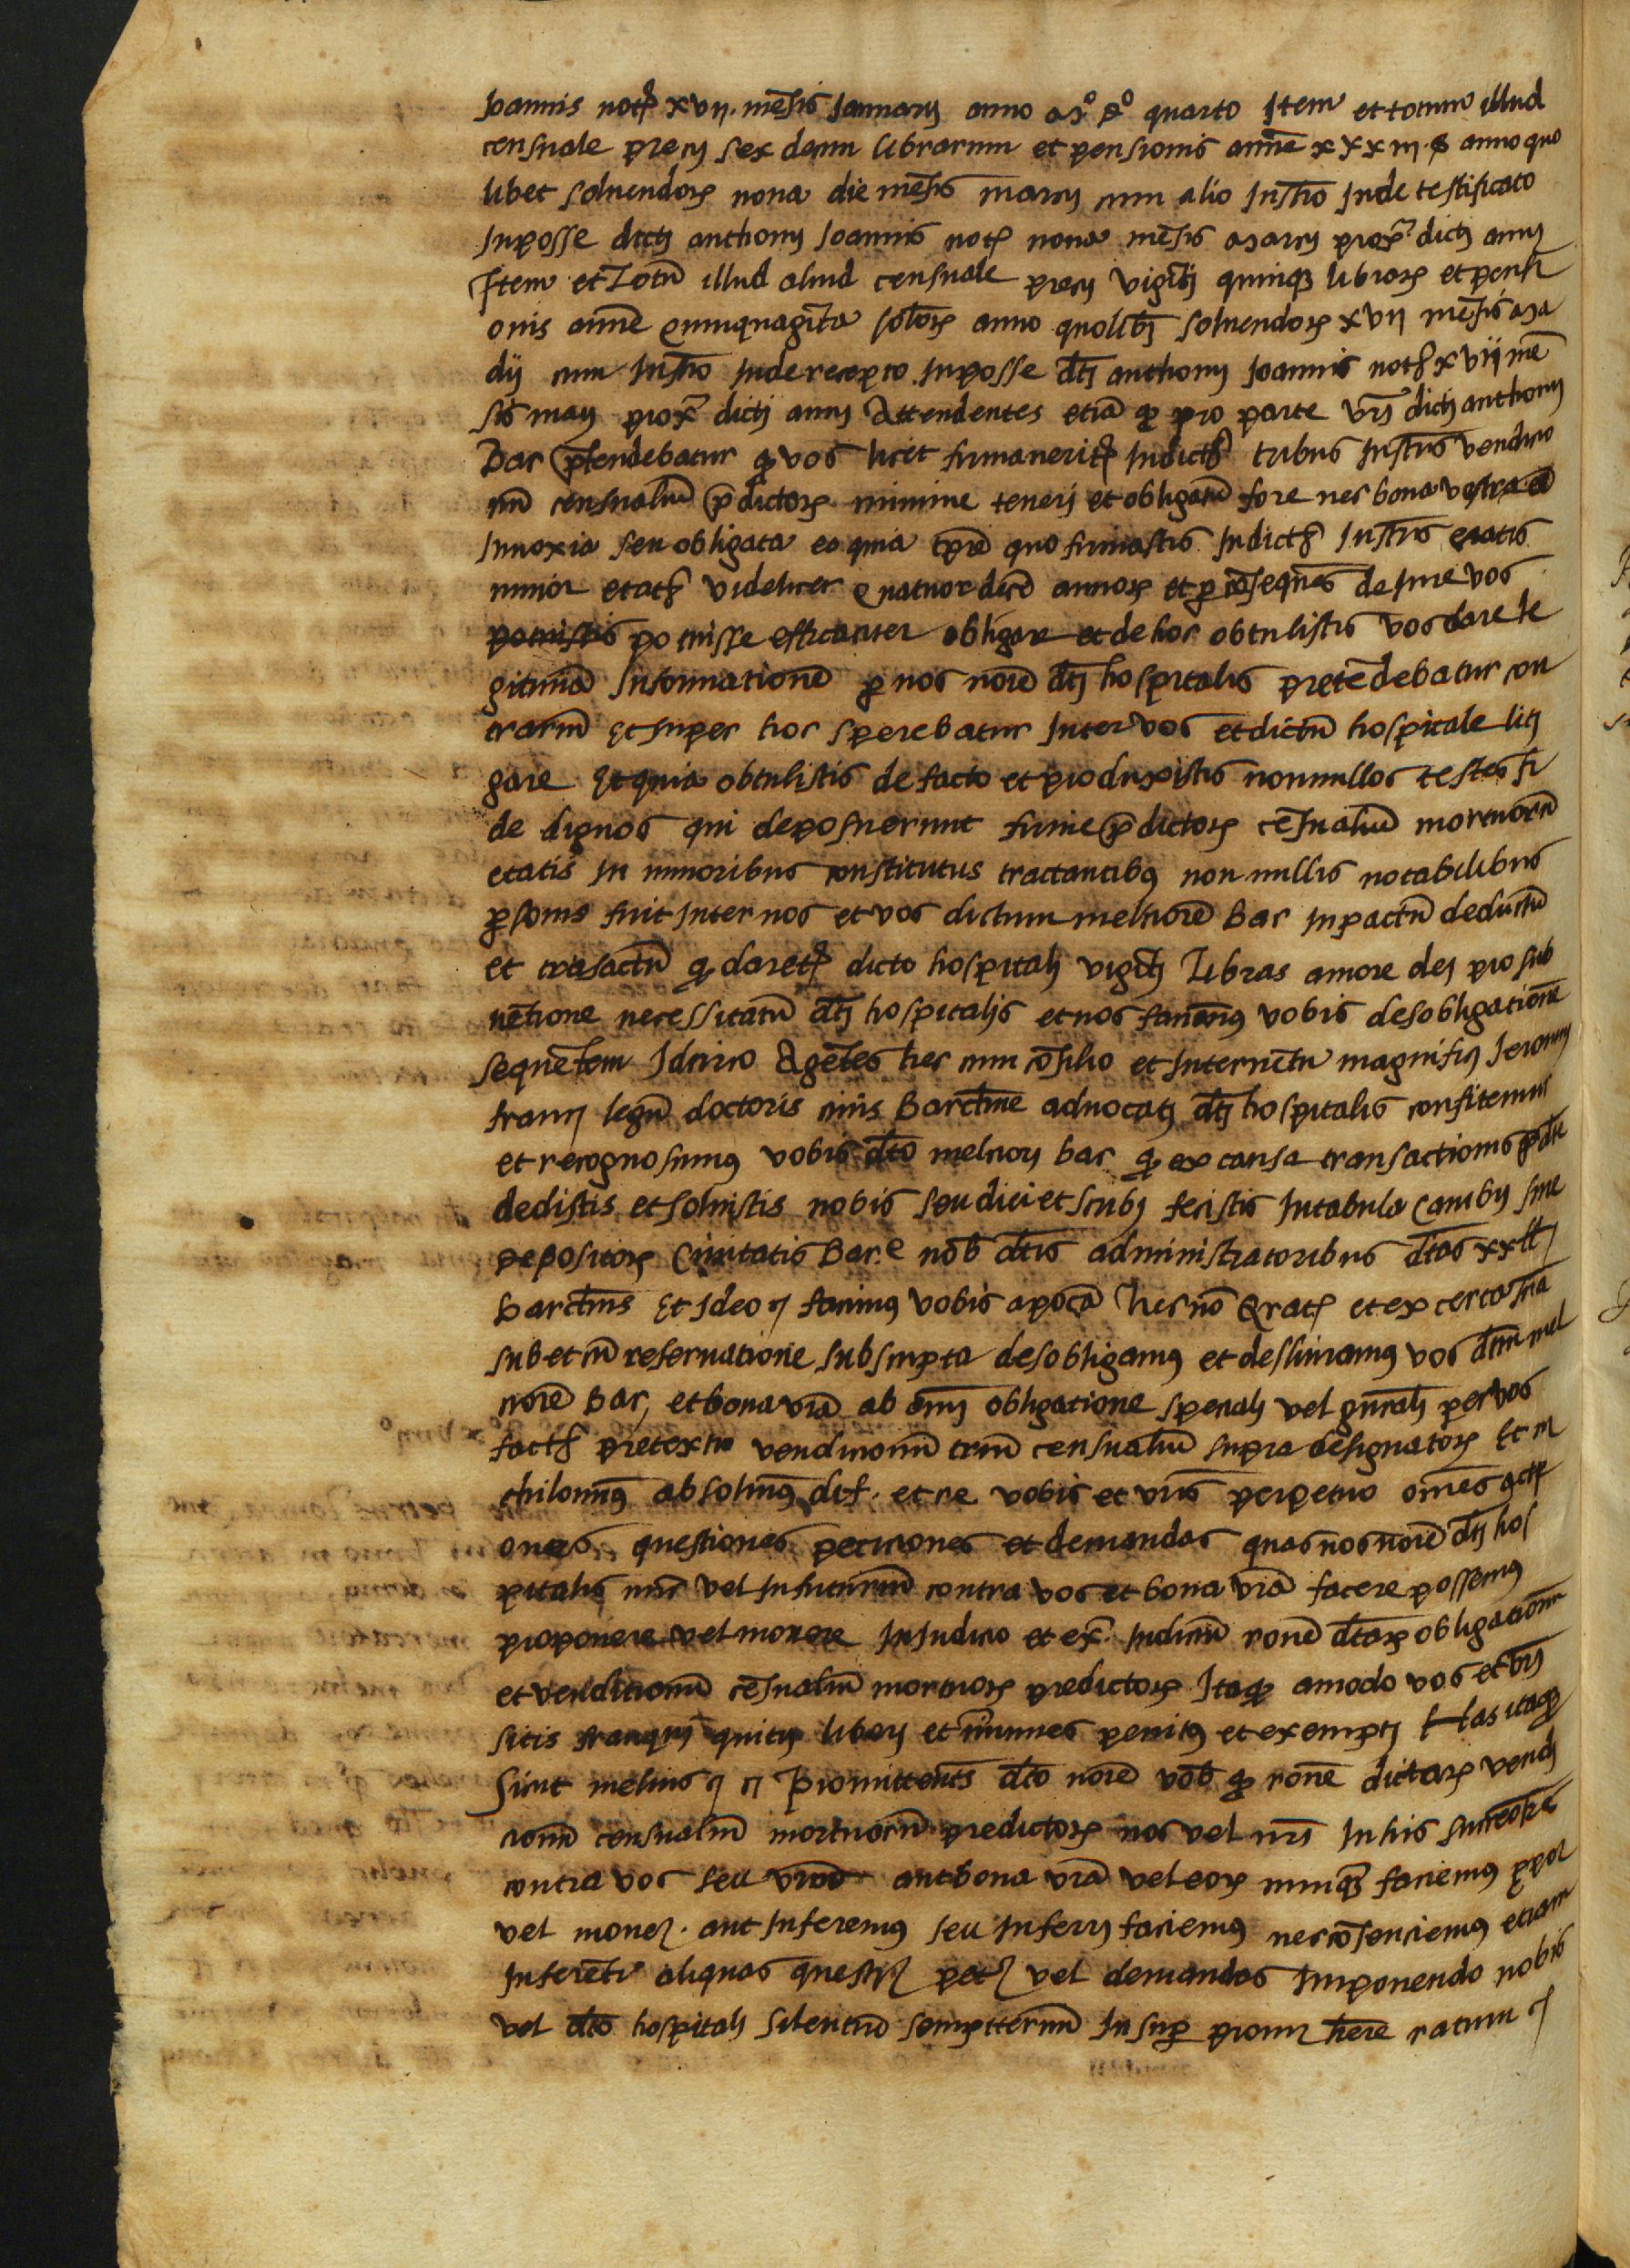 Joannis not͛ xvij. mēsis Januarij anno Mº Dº quarto Item et totum illud
censuale precij sex decim librarum et pensionis annue xxxiij. s anno quo
libet soluendoꝝ nona die mēsis marcij cum alio Instro Inde testificato
Inposse dictj anthonij Joannis notꝭ nona mēsis marcij prox͛. dictj annj
Item et Totū illud aliud censuale precij vigītj quinqꝫ libroꝝ et pensi
onis annue Quinquagīta soldoꝝ anno quolibꝫ soluendoꝝ xvij mēsis Ma
dij cum Instro Inde recepto Inposse dtj anthonij Joannis notꝭ xvij mē
sis maij prox͛ dictj annj Attendentes etiā ꝙ pro parte vrj dictj anthonij
Bar p̄tendebatur ꝙ vos licet firmaueritꝭ Indictꝭ tribus Instris vendicio
nū censualiū p̄dictoꝝ minime tenerj et obligatū fore nec bona vestra
Innoxia seu obligata eo quia tp̄re quo firmastis Indictꝭ Instris etatis
minor etatꝭ videlicet Quatuordecī annoꝝ et ꝑ cōsequēs de Jure vos
potuistis potuisse efficaciter obligare et de hoc obtulistis vos dare le
gitimā Informationē ꝑ nos noīe dtj hospitalis pretēdebatur con
trariū Et super hoc sperebatur Inter vos et dictū hospitale litj
gare Et quia obtulistis de facto et produxistis nonnullos testes fi
de dignos qui deposuerunt firme p̄dictoꝝ cēsualiū mortuorū
etatis In minoribus constitutus tractantibꝫ non nullis notabilibus
ꝑsonis fuit Inter nos et vos dictum melciorē Bar Inpactū deductū
et trāsactū ꝙ daretꝭ dicto hospitalj vigītj Libras amore dej pro sub
uētione necessitatū dtj hospitalis et nos faceremꝰ vobis desobligationē
sequētem Idcirco Agētes hec cum cōsilio et Interuētu magnifici Jeronimj
francj legū doctoris ciuis Barchne aduocatj dtj hospitalis confitemur
et recognoscimꝰ vobis dto melciorj bar ꝙ ex causa transactionis p̄dte
dedistis et soluistis nobis seu dici et scribj fecistis Intabula Cambij siue
depositoꝝ Ciuitatis Bar.e nob dtis administratoribus dtas xx ll
barchns Et Ideo ⁊ facimus vobis apocā hec nō Gratꝭ et ex certa scia
sub et cū reseruatione subscripta desobligamꝰ et desliuramꝰ vos dtum mel
ciorē Bar, et bona vra ab omj obligatione specialj vel gnralj per vos
factꝭ pretextu vendicionū triū censualiū supra designatoꝝ Et ni
chilominꝰ absoluimꝰ dif. et re vobis et vris perpetuo omēs actj
ones questiones peticiones et demandas quas nos noīe dtj hos
pitalis nūc vel Infuturum contra vos et bona vra facere possemꝰ
proponere vel mouere Iniudicio et ex͛. Iudiciū ronē dtaꝝ obligationū
et venditionū cēsualiū mortuoꝝ predictoꝝ Itaqꝫ amodo vos et vrj
sitis franqui quitij liberj et immunes penitꝰ et exemptj Has itaqꝫ
Sicut melius ⁊ ⁊ Promittentes dto noīe vob ꝙ ronē dictaꝝ vendi
cionū censualiū mortuorū predictoꝝ nos vel nrj In his successores
contra vos seu vros aut bona vra vel eoꝝ nunqꝫ faciemꝰ ppoꝛ
vel mouer. aut Inferemꝰ seu Inferrj faciemꝰ nec cōsenciemꝰ etiam
Inferētj aliquas questꝭ petꝭ vel demandas Imponendo nobis
vel dto hospitalj silentiū sempiternū In sup promꝭ here ratum ⁊